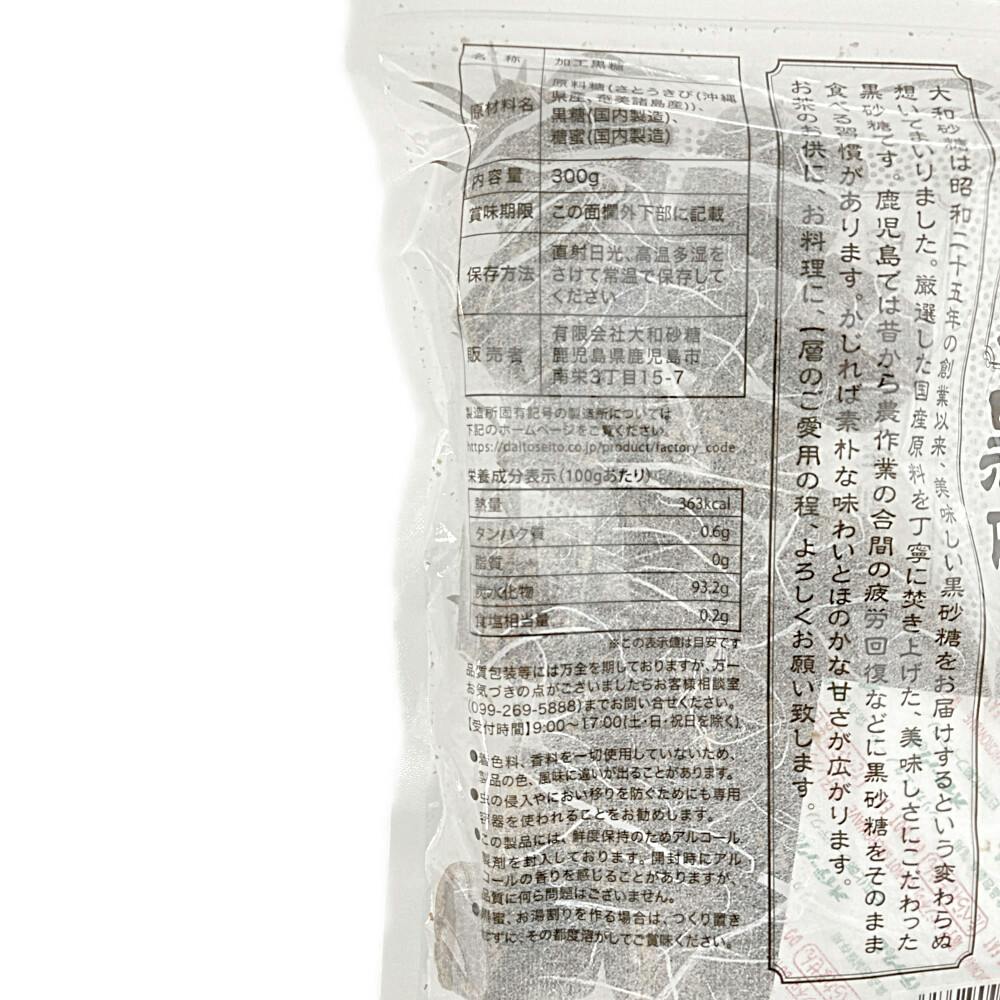 名 称 加工黒糖
原材料名 原料糖(さとうきび(沖縄
県産、奄美諸島産))、
黒糖(国内製造)、
糖蜜(国内製造)
内容量 300g
賞味期限 この面欄外下部に記載
保存方法 直射日光、高温多湿を
さけて常温で保存して
ください
販売者 有限会社大和砂糖
鹿児島県鹿児島市
南栄3丁目15-7
製造所固有記号の製造所については
下記のホームページをご覧ください。
https://daitoseito.co.jp/product/factory_code
栄養成分表示(100gあたり)
熱量 363kcal
タンパク質 0.6g
脂質 0g
炭水化物 93.2g
食塩相当量 0.2g
※この表示値は目安です
品質包装等には万全を期しておりますが、万一
お気づきの点がございましたらお客様相談室
(099-269-5888)までお問い合せください。
【受付時間】9:00〜17:00(土・日・祝日を除く)
●着色料、香料を一切使用していないため、
製品の色、風味に違いが出ることがあります。
●虫の侵入やにおい移りを防ぐためにも専用
容器を使われることをお勧めします。
●この製品には、鮮度保持のためアルコール
製剤を封入しております。開封時にアル
コールの香りを感じることがありますが、
品質に何ら問題はございません。
●黒蜜、お湯割りを作る場合は、つくり置き
せずに、その都度溶かしてご賞味ください。
大和砂糖は昭和二十五年の創業以来、美味しい黒砂糖をお届けするという変わらぬ
想いでまいりました。厳選した国産原料を丁寧に焚き上げた、美味しさにこだわった
黒砂糖です。鹿児島では昔から農作業の合間の疲労回復などに黒砂糖をそのまま
食べる習慣があります。かじれば素朴な味わいとほのかな甘さが広がります。
お茶のお供に、お料理に、一層のご愛用の程、よろしくお願い致します。